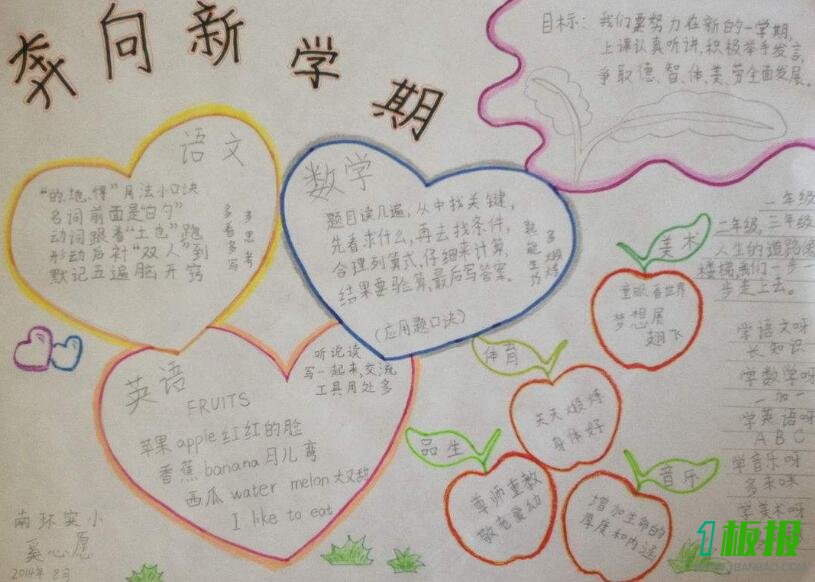 奔向新学期
目标：我们要努力在新的一学期，
上课认真听讲，积极举手发言，
争取德、智、体、美、劳全面发展。
语文
“的、地、得”用法小口诀
名词前面是“白勺”
动词跟着“土也”跑
形动后补“双人”到
默记五遍脑开窍
多看多写
多思考
数学
题目读几遍，从中找关键，
先看求什么，再去找条件，
合理列算式，仔细来计算，
结果要验算，最后写答案。
（应用题口诀）
熟能生巧
多锻炼
英语
FRUITS
苹果apple红红的脸
香蕉banana月儿弯
西瓜water melon大又甜
I like to eat
听说读
写一起来，交流
工具用处多
美术
重眼看世界
梦想展
翅飞
体育
天天锻炼
身体好
品生
尊师重教
敬老爱幼
音乐
增加生命的
厚度和内涵
一年级
二年级，三年级
人生的道路
楼梯，我们一步一
步走上去。
学语文呀
长知识
学数学呀
学英语呀
A B C
学音乐呀
多来咪
学美术呀
南环实小
奚心愿
2014年 8月
1板报